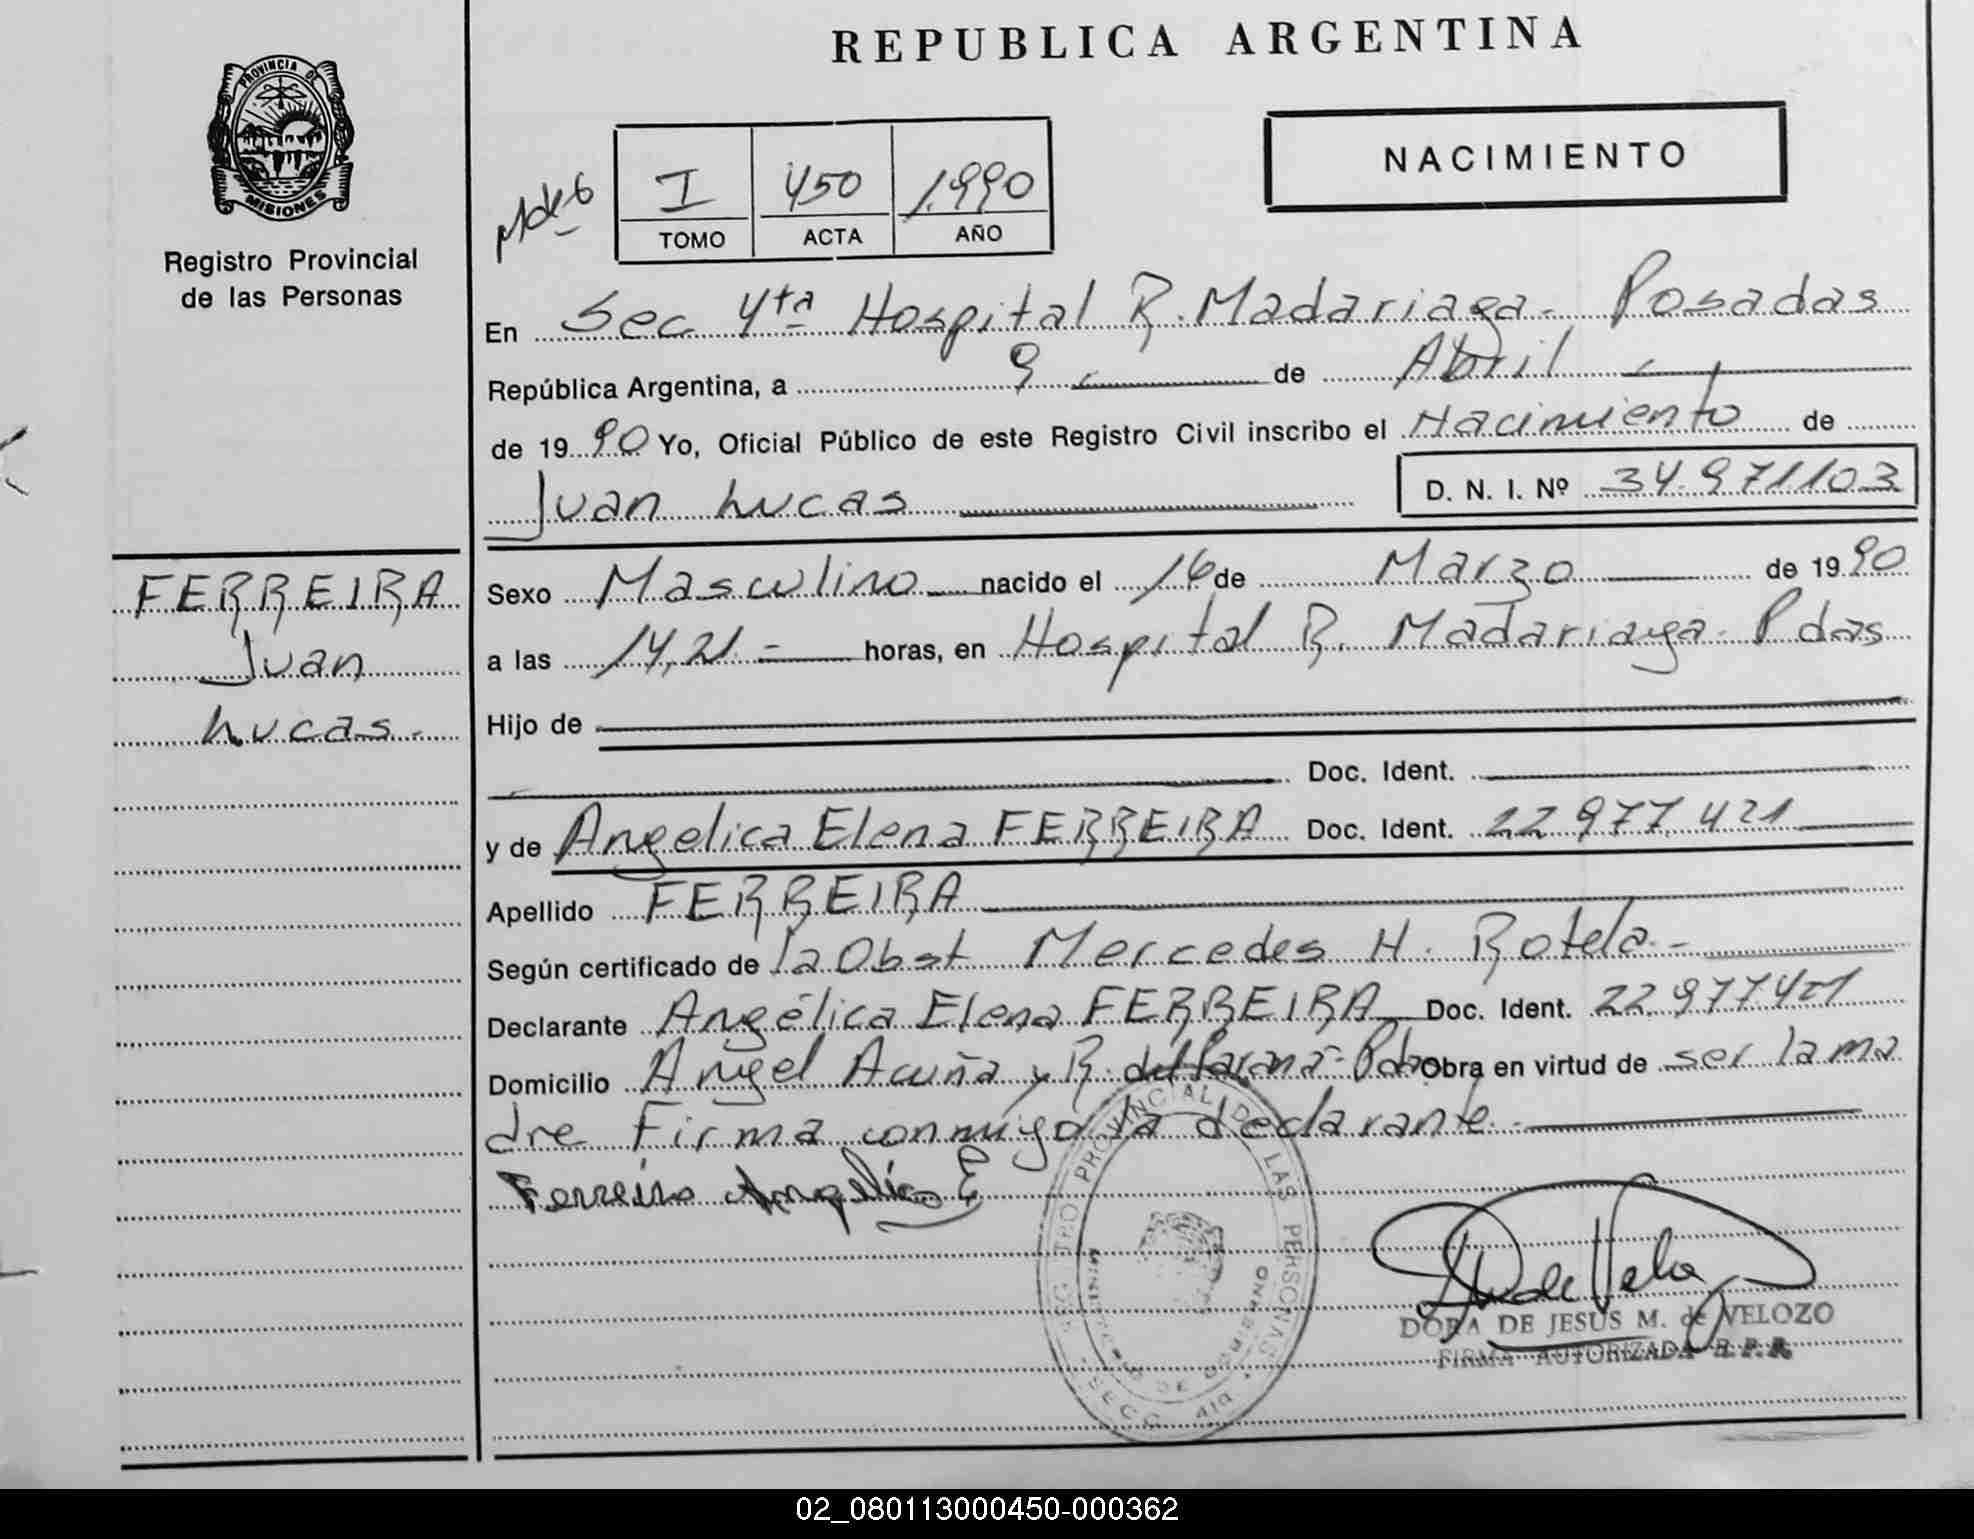 REPUBLICA ARGENTINA
PROVINCIA DE
MISIONES
Registro Provincial
de las Personas
NACIMIENTO
I 450 1.990
TOMO ACTA AÑO
En Sec 4ta Hospital R. Madariaga - Posadas
República Argentina, a 9 de Abril
de 1990 Yo, Oficial Público de este Registro Civil inscribo el Nacimiento de
Juan Lucas D. N. I. Nº 34.971103
FERREIRA
Juan
Lucas.-
Sexo Masculino nacido el 16 de Marzo de 1990
a las 14,21.- horas, en Hospital R. Madariaga - Pdas
Hijo de
Doc. Ident.
y de Angelica Elena FERREIRA Doc. Ident. 22 977 421
Apellido FERREIRA
Según certificado de la Obst Mercedes H. Rotela.-
Declarante Angélica Elena FERREIRA Doc. Ident. 22.977421
Domicilio Angel Acuña y R. del Paraná - Obra en virtud de ser la ma
dre Firma conmigo la declarante.-
Ferreira Angelica E
REGISTRO PROVINCIAL DE LAS PERSONAS
MINISTERIO DE GOBIERNO
SECC. 4ta
DORA DE JESUS M. de VELOZO
FIRMA AUTORIZADA R.P.P.
02_080113000450-000362